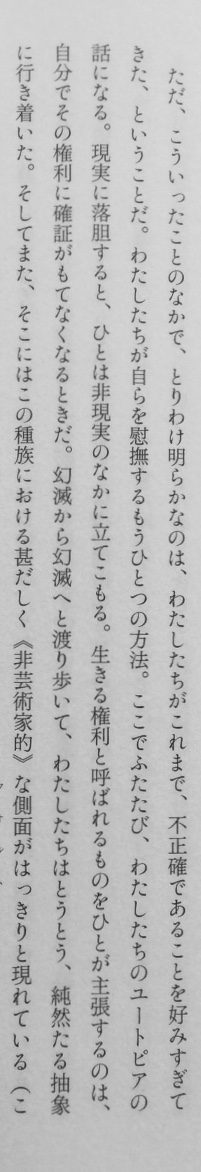 ただ、こういったことのなかで、とりわけ明らかなのは、わたしたちがこれまで、不正確であることを好みすぎて
きた、ということだ。わたしたちが自らを慰撫するもうひとつの方法。ここでふたたび、わたしたちのユートピアの
話になる。現実に落胆すると、ひとは非現実のなかに立てこもる。生きる権利と呼ばれるものをひとが主張するのは、
自分でその権利に確証がもてなくなるときだ。幻滅から幻滅へと渡り歩いて、わたしたちはとうとう、純然たる抽象
に行き着いた。そしてまた、そこにはこの種族における甚だしく《非芸術家的》な側面がはっきりと現れている（こ